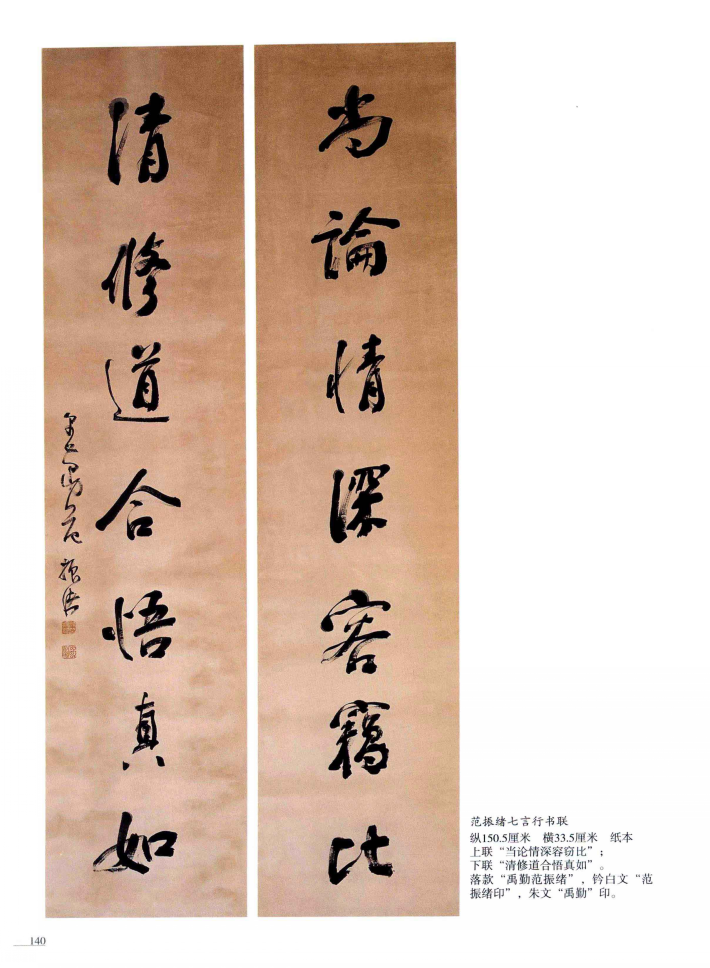 尚論情深容竊比
清修道合悟真如
范振緒
范振绪七言行书联
纵150.5厘米 横33.5厘米 纸本
上联“当论情深容窃比”；
下联“清修道合悟真如”。
落款“禹勤范振绪”，钤白文“范
振绪印”，朱文“禹勤”印。
140